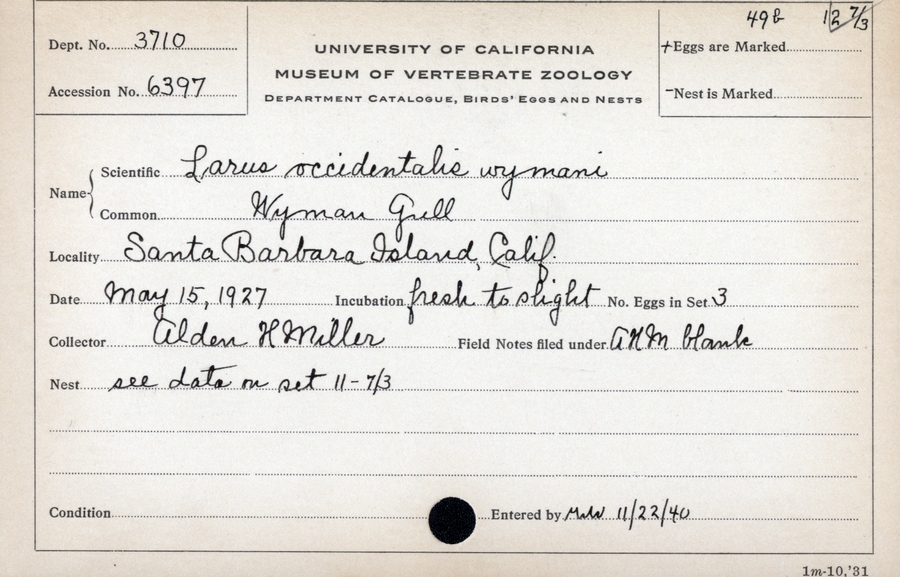 49b 12 7/3
Dept. No. 3710
UNIVERSITY OF CALIFORNIA
+Eggs are Marked
MUSEUM OF VERTEBRATE ZOOLOGY
Accession No. 6397
DEPARTMENT CATALOGUE, BIRDS' EGGS AND NESTS
-Nest is Marked
Name { Scientific Larus occidentalis wymani
Common Wyman Gull
Locality Santa Barbara Island, Calif.
Date May 15, 1927 Incubation fresh to slight No. Eggs in Set 3
Collector Alden H Miller Field Notes filed under AHM blank
Nest see data on set 11-7/3
Condition Entered by 11/22/40
1m-10,'31